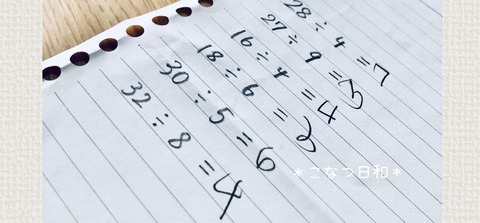 28÷4=7
27÷9=3
16÷4=4
18÷6=3
30÷5=6
32÷8=4
*こなつ日和*